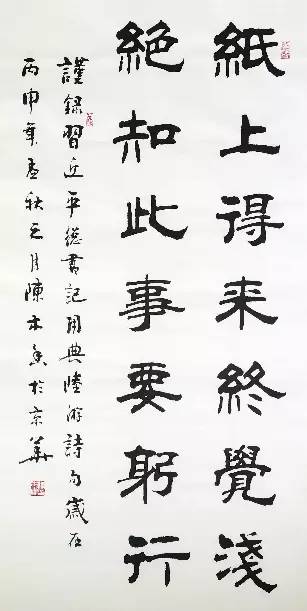 紙上得来終覺淺
絕知此事要躬行
謹録習近平總書記用典陸游詩句歲在
丙申年孟秋之月陳木於京華